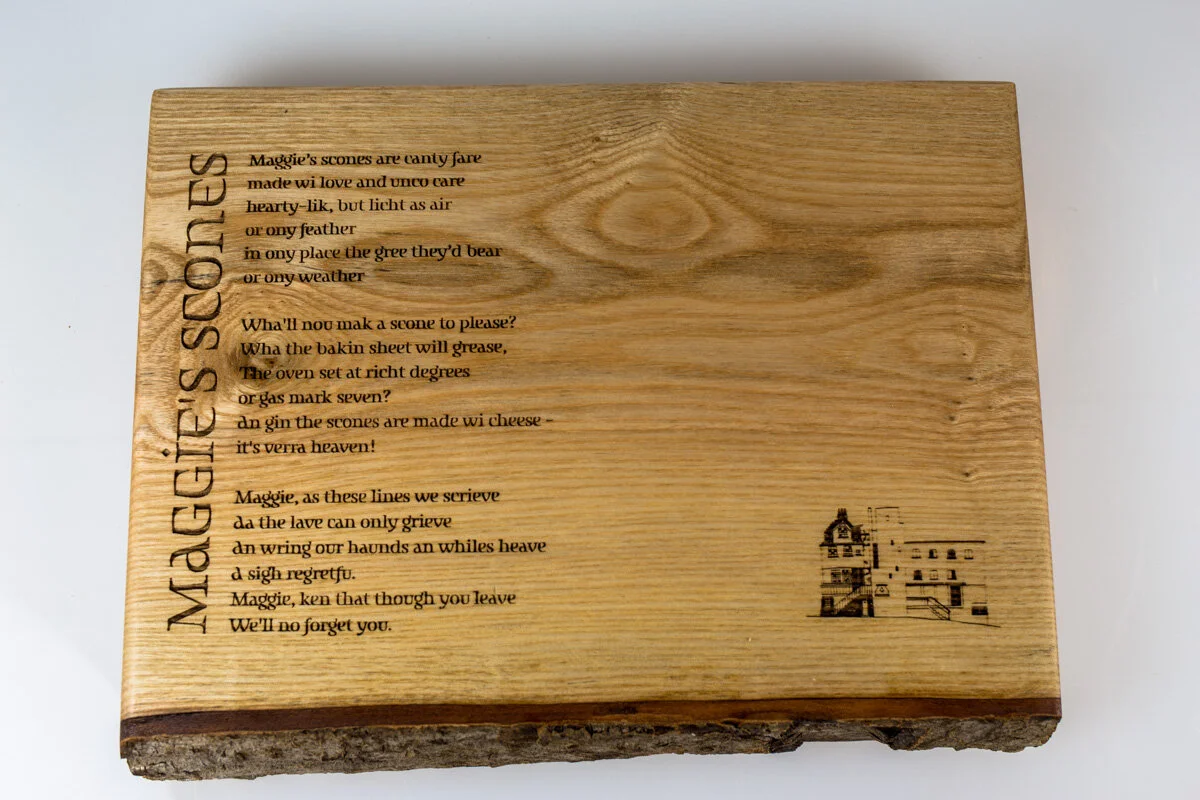 Maggie's scones
Maggie's scones are canty fare
made wi love and unco care
hearty-lik, but licht as air
or ony feather
in ony place the gree they'd bear
or ony weather
Wha'll nou mak a scone to please?
Wha the bakin sheet will grease,
The oven set at richt degrees
or gas mark seven?
An gin the scones are made wi cheese -
it's verra heaven!
Maggie, as these lines we scrieve
Aa the lave can only grieve
An wring our haunds an whiles heave
A sigh regretfu.
Maggie, ken that though you leave
We'll no forget you.